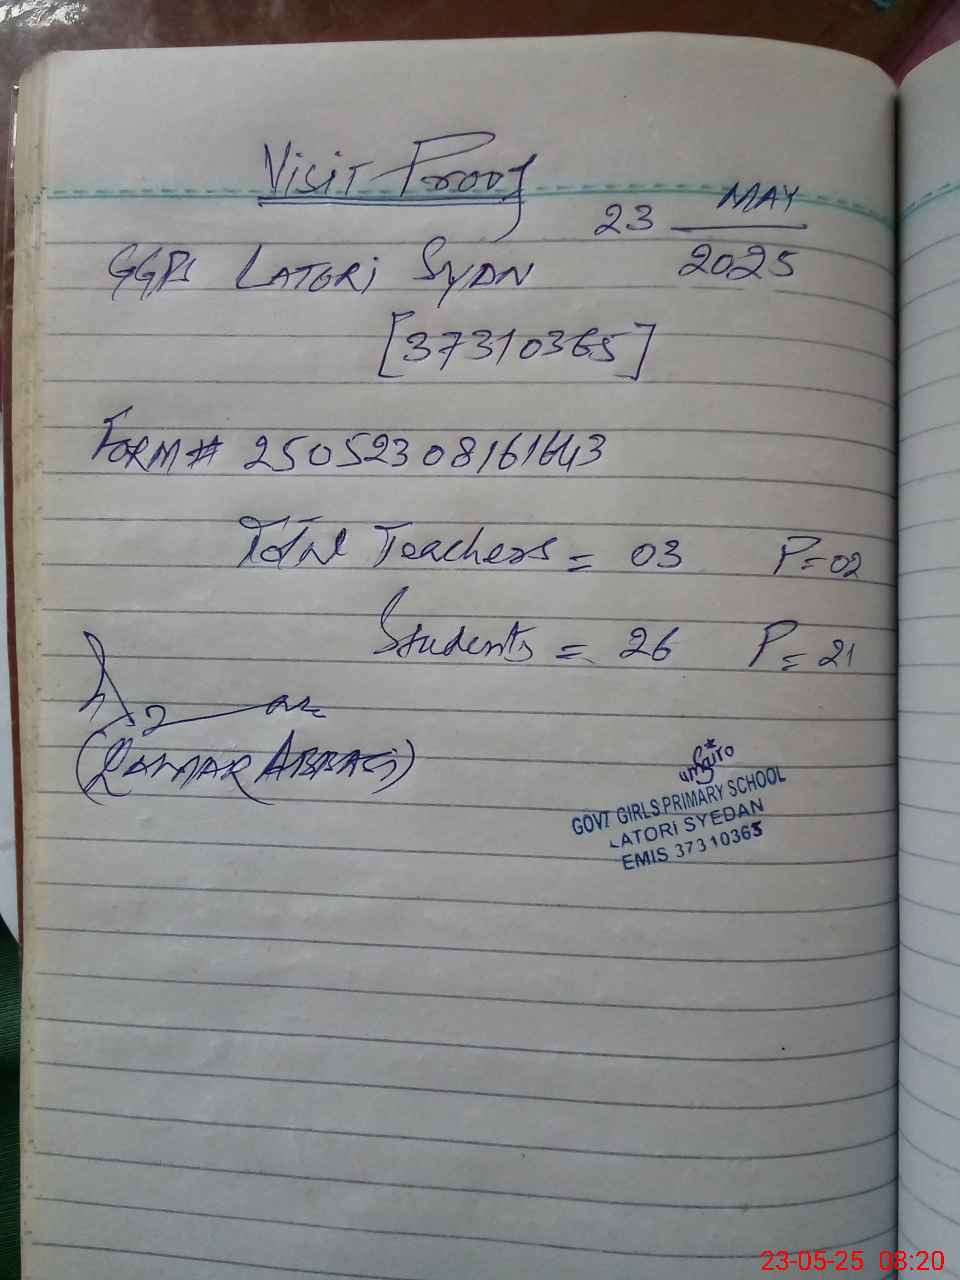 Visit Proof
23 MAY
2025
GGPS LATORI SYDN
[37310365]
FORM# 25052308161643
Total Teachers = 03 P=02
Students = 26 P=21
(QAMAR ABBAS)
GOVT GIRLS PRIMARY SCHOOL
LATORI SYEDAN
EMIS 37310365
23-05-25 08:20